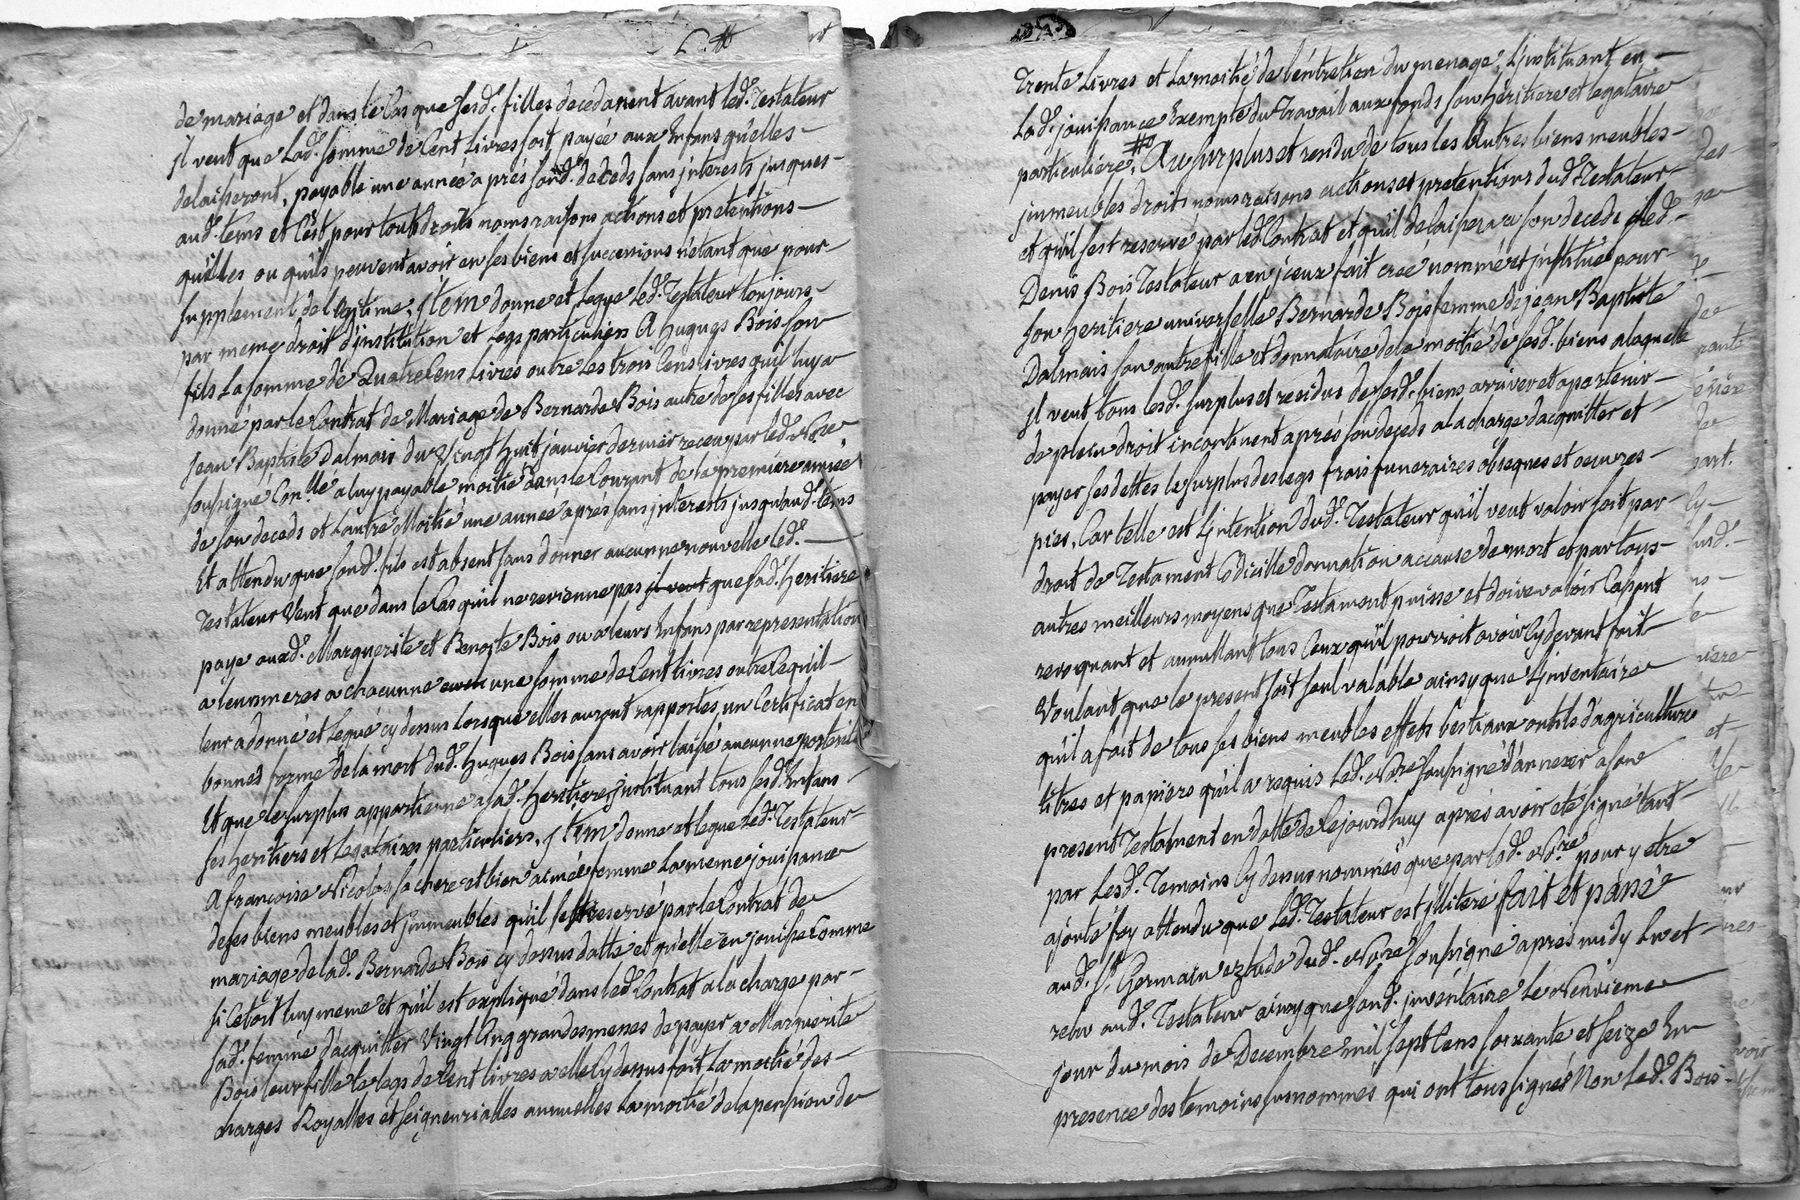 de mariage et dans le Cas que sesd. filles decedanent avant led. Testateur
jl veut que Lad. somme de Cent Livres soit payée aux Enfans qu'elles
delaisseront, payable une année aprés sond. deceds sans jnterests jusques
aud. tems et C'est pour tout droits noms raisons actions et pretentions
qu'elles ou qu'ils peuvent avoir en ses biens et successions n'etant que pour
supplement de legitime, jtem donne et legue led. Testateur toujours
par meme droit d'institution et Legs particuliers A hugues Bois son
fils La somme de Quatre Cens Livres outre Les trois Cens livres qu'il luy a
donné par le Contrat de Mariage de Bernarde Bois autre de ses filles avec
jean Baptiste Dalmais du Vingt huit janvier dernier receu par led. No.re
sousigné Con.lle a luy payable moitié dans le Courant de la premiere année
de son deceds et L'autre Moitié une année aprés sans jnterests jusqu'aud. tems
Et attendu que sond. fils est absent sans donner aucunne nouvelle led.
Testateur Veut que dans le Cas quil ne revienne pas il veut que sad. heritiere
paye auxd. Marguerite et Benoite Bois ou a leurs Enfans par representation
a leurs meres a chacunne une somme de Cent livres outre Ce quil
leur a donné et Legué cy dessus lorsque elles auront rapportés un Certificat en
bonnes forme de la mort dud. hugues Bois sans avoir laissé aucunne posterité
Et que le surplus appartienne a sad. heritiere jnstituant tous sesd. Enfans
ses heritiers et Legataires particuliers, jtem donne et legue led. Testateur
A francoise Nicolas sa chere et bien aimée femme La meme jouissance
de ses biens meubles et jmmeubles qu'il s'est reservé par le Contrat de
mariage de lad. Bernarde Bois cy dessus datté et qu'elle en jouisse Comme
si C'etoit luy meme et qu'il est expliqué dans led. Contrat a la charge par
sad. femme d'acquitter Vingt Cinq grandes messes de payer a Marguerite
Bois leur fille le legs de Cent livres a elle Cy dessus fait La moitié des
charges Royalles et seigneurialles annuelles La moitié de la pension de
trente Livres et La moitié de l'entretien du menage, L'jnstituant en
Lad. jouissance Exempte du travail aux fonds son heritiere et legataire
particuliere, Au surplus et residu de tous les Autres biens meubles
jmmeubles droits noms raisons actions et pretentions dud. Testateur
et qu'il s'est reservé par led. Contrat et quil delaissera a son deceds jled.
Denis Bois Testateur a en jceux fait creé nommé et jnstitué pour
son heritiere universelle Bernarde Bois femme de jean Baptiste
Dalmais son autre fille et donnataire de la moitié de sesd. biens a laquelle
jl veut tous lesd. surplus et residus de sesd. biens arriver et apartenir
de plein droit incontinent aprés son deceds a la charge d'acquitter et
payer ses dettes le surplus des legs frais funeraires obseques et oeuvres
pies, Car telle est L'jntention dud. Testateur qu'il veut valoir soit par
droit de Testament Codicille donnation a cause de mort et par tous
autres meilleurs moyens que Testament puisse et doive valoir Cassant
revoquant et annullant tous Ceux qu'il pourroit avoir Cy devant fait
Voulant que le present soit seul valable ainsy que L'jnventaire
qu'il a fait de tous ses biens meubles effets bestiaux outils d'agriculture
titres et papiers qu'il a requis Led. No.re sousigné d'annexer a son
present Testament en datte de Cejourdhuy aprés avoir eté signé tant
par Lesd. Temoins Cy dessus nommés que par Led. No.re pour y etre
ajouté foy attendu que Led. Testateur est jlliteré fait et passé
aud. S.t Germain etude dud. No.re Sousigné aprés midy Lu et
relu aud. Testateur ainsy que sond. jnventaire Le Neuvieme
jour du mois de Decembre mil sept Cens soixante et seize En
presence des temoins susnommes qui ont tous signés Non Led. Bois